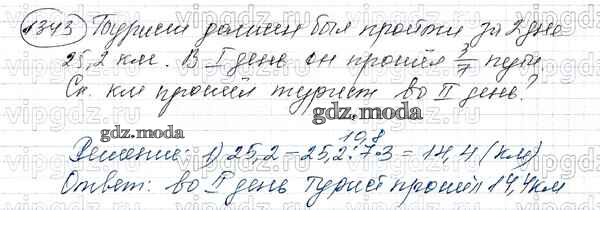 1343) Турист должен был пройти за 2 дня
25,2 км. В I день он прошёл 3/7 пути
Ск. км прошёл турист во II день?
gdz.moda
gdz.moda
10,8
Решение: 1) 25,2 - 25,2:7·3 = 14,4 (км)
Ответ: во II день турист прошёл 14,4 км